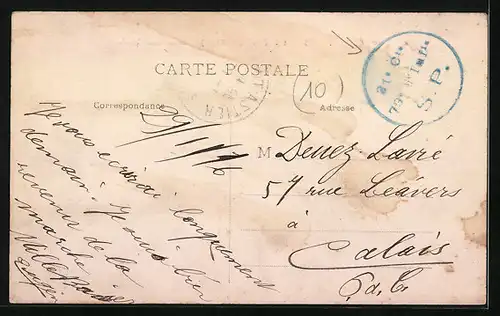 CARTE POSTALE
Correspondance
Adresse
10
2e Cie
79e Infie
S. P.
29/1/16
Je vous écrirai longuement
demain. Je suis bien
revenu de la
marche
Mille Baisers
M Denez Lavié
57 rue Leavers
à
Calais
P. d. C.